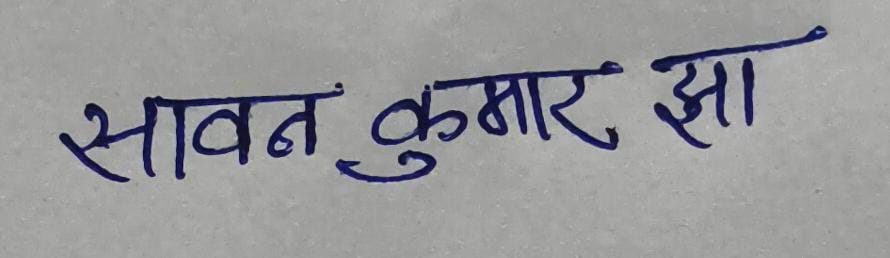 सावन कुमार झा